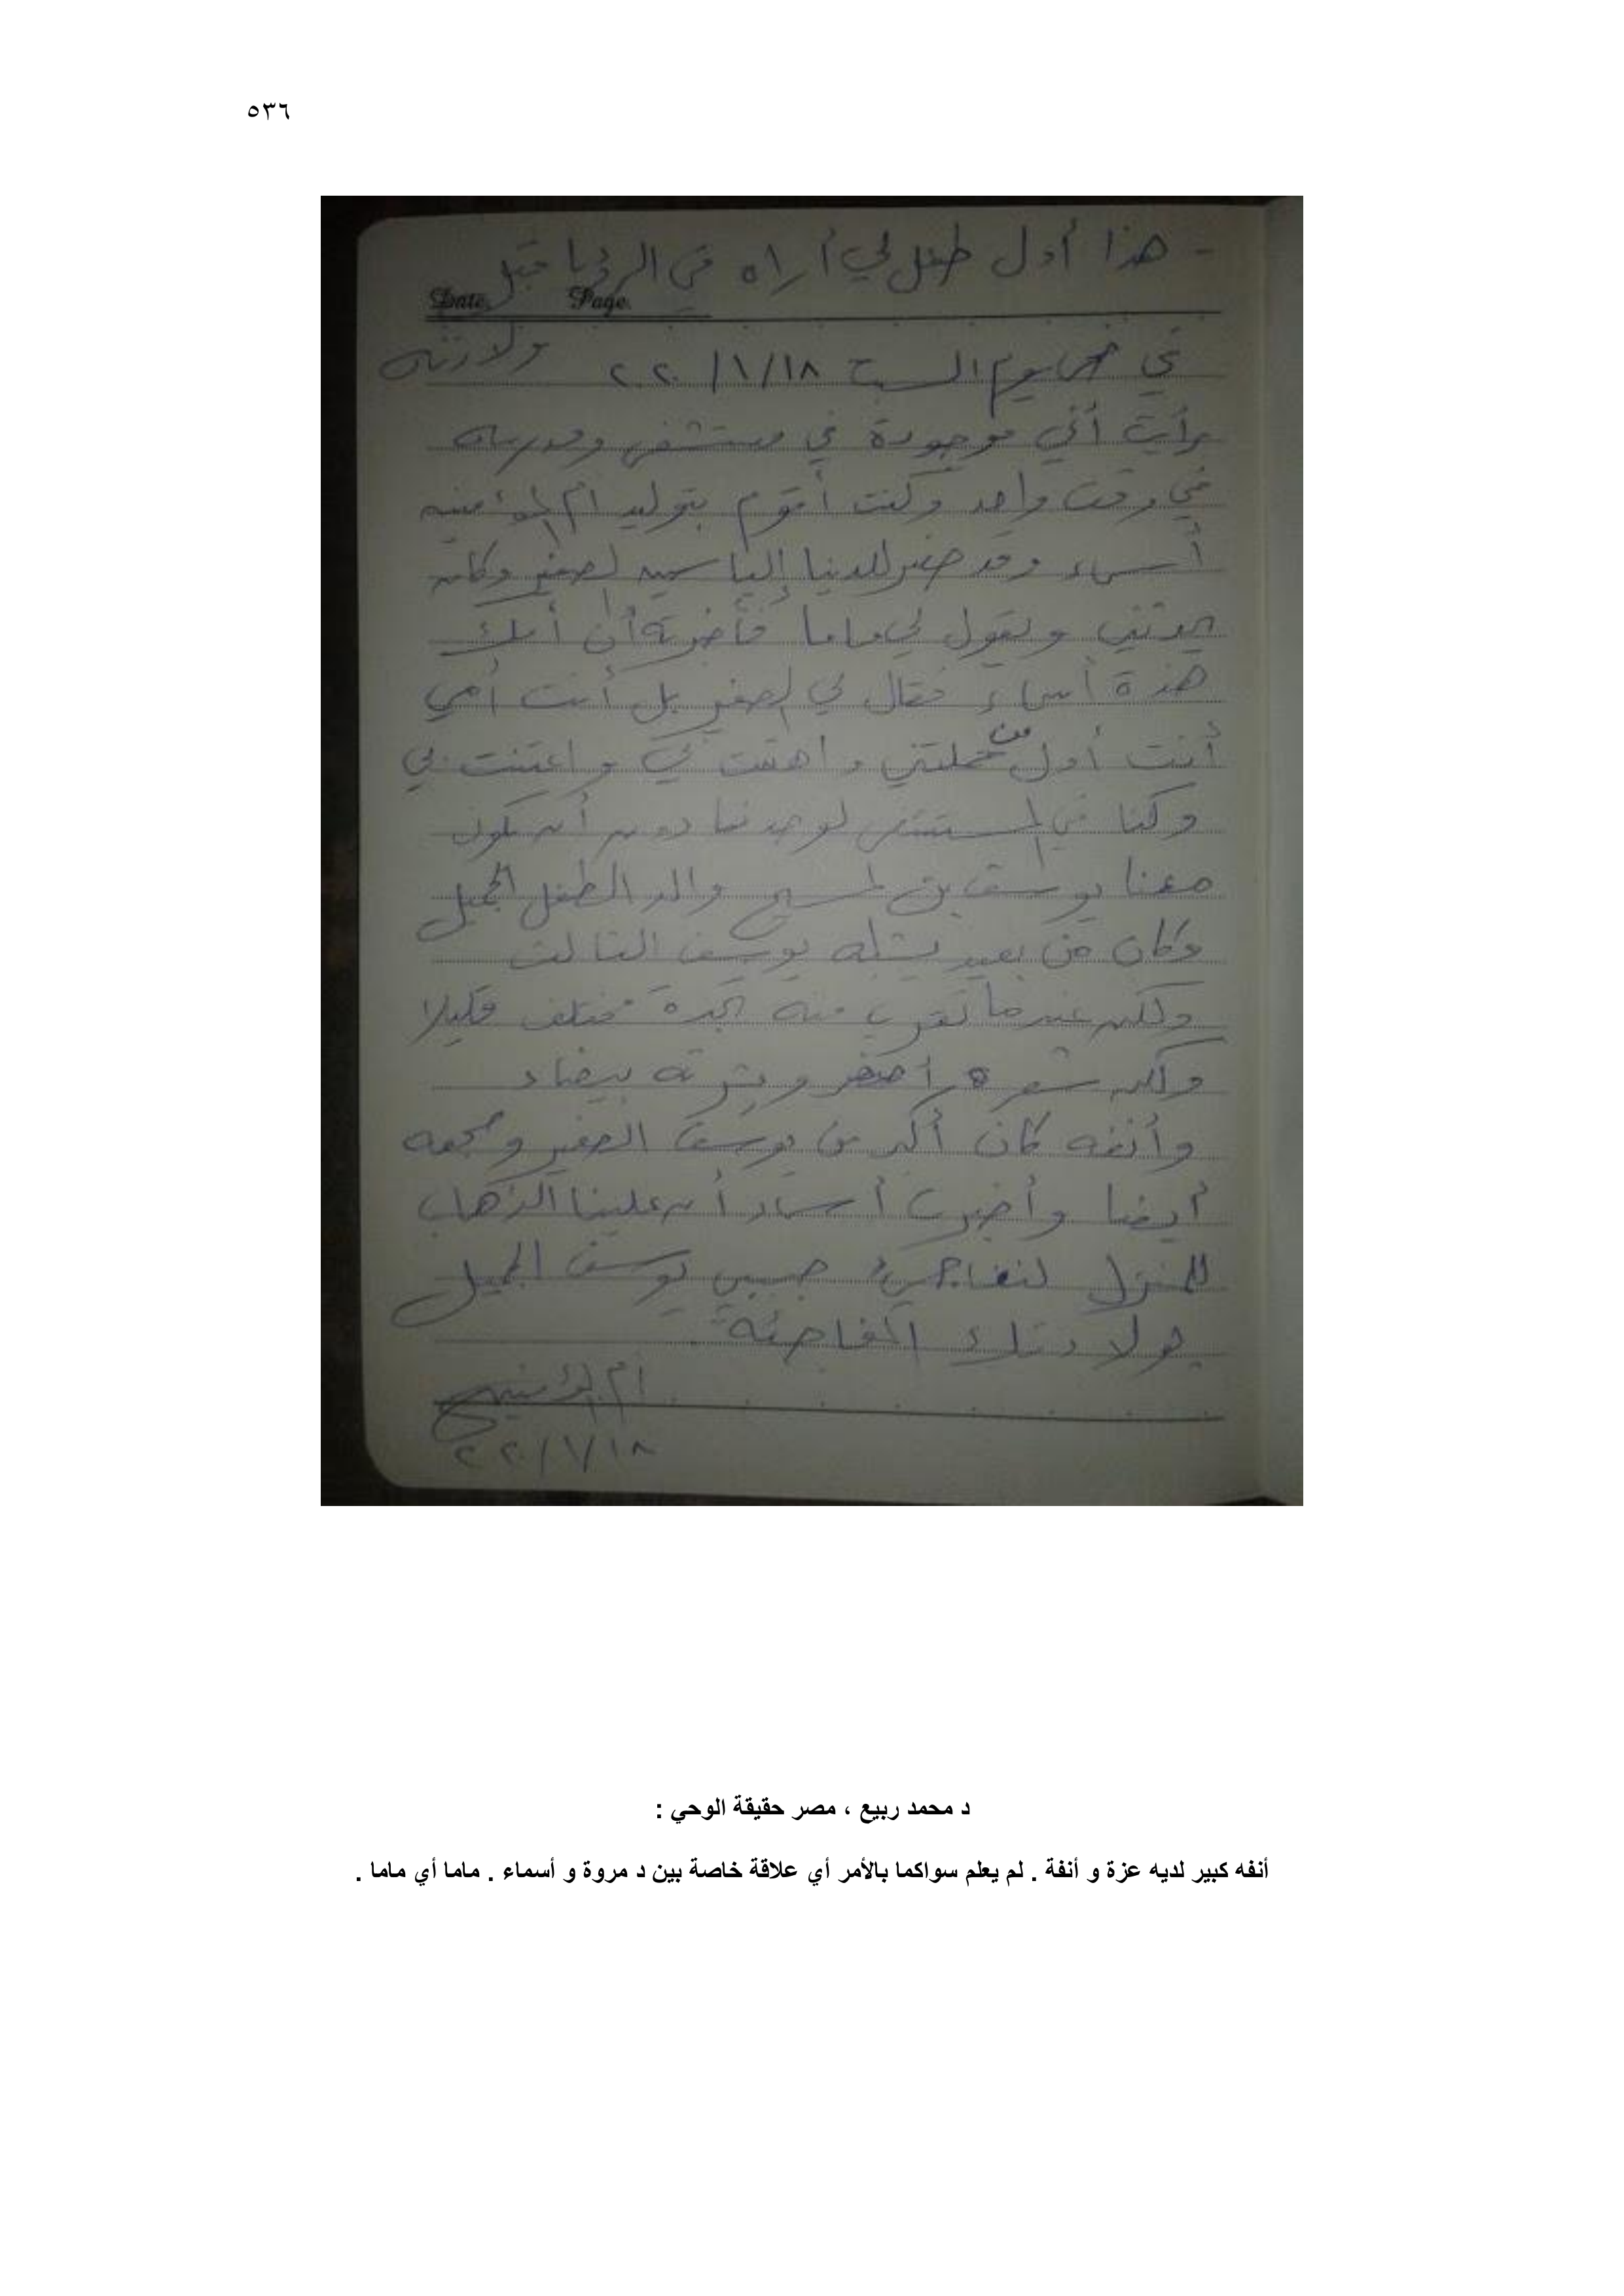 ٥٣٦
- هذا أول طفل لي أراه في الرؤيا قبل
Date. Page.
ولادته
في ضحى يوم السبت ٢٠٢٠/١/١٨
رأيت أني موجودة في مستشفى ومدرسه
في وقت واحد وكنت أقوم بتوليد أم المؤمنين
أسماء وقد حضر للدنيا إلياسين الصغير وكان
يحدثني ويقول لي ماما فأخبرته أن أمك
هذة أسماء فقال لي الصغير بل أنت أمي
أنت أول من حملتني واهتمت بي واعتنت بي
وكنا في المستشفى لوحدنا دون أن يكون
معنا يوسف بن المسيح والد الطفل الجميل
وكان من بعيد يشبه يوسف الثالث
ولكن عندما تقرب منه تجدة مختلف قليلا
ولكن شعره أصفر وبشرته بيضاء
وأنفه كان أكبر من يوسف الصغير وحجمه
أيضا وأخبرت أسماء أن علينا الذهاب
للمنزل لنفاجئ حبيبي يوسف الجميل
بولادتك المفاجئة.
أم المؤمنين
٢٠٢٠/١/١٨
د محمد ربيع ، مصر حقيقة الوحي :
أنفه كبير لديه عزة و أنفة . لم يعلم سواكما بالأمر أي علاقة خاصة بين د مروة و أسماء . ماما أي ماما .